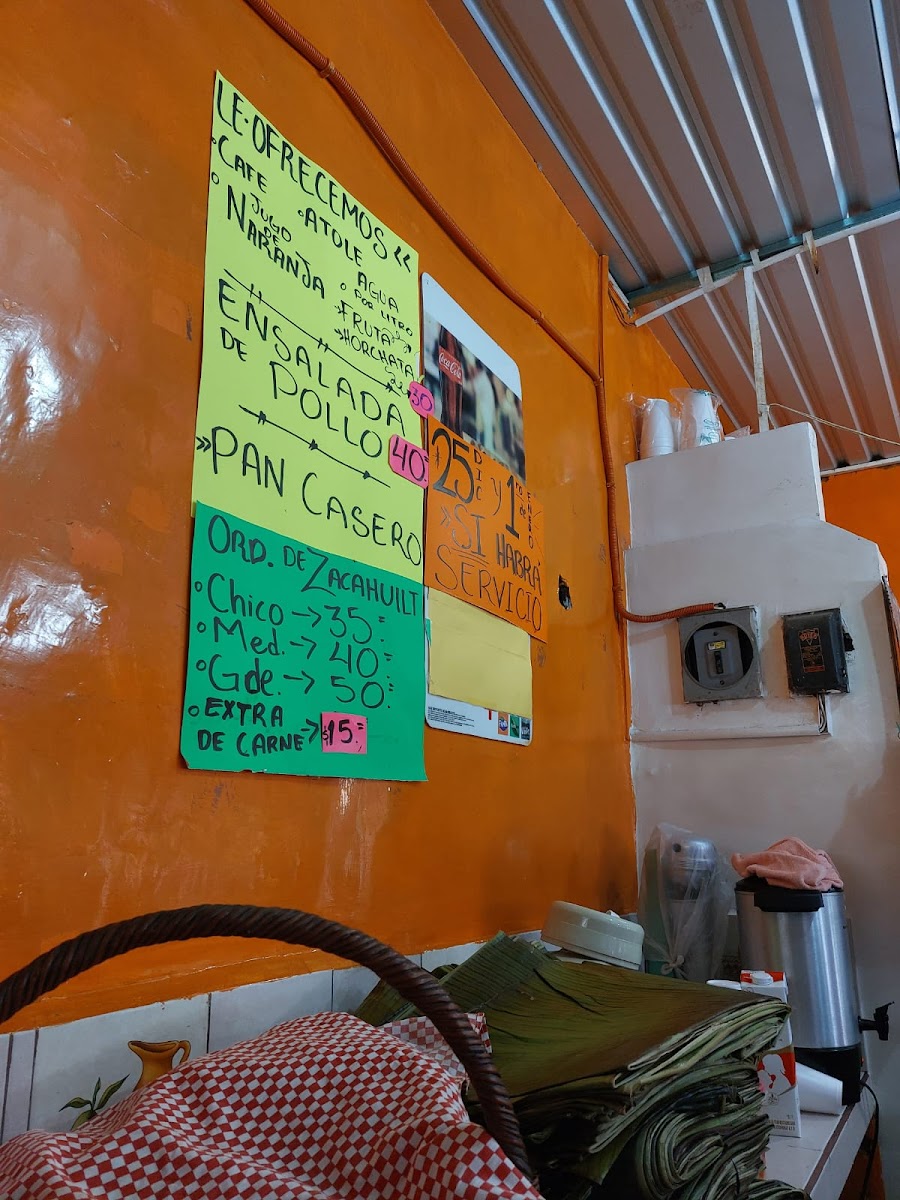 LE·OFRECEMOS<<
°CAFE
°ATOLE
°JUGO
DE
NARANJA
AGUA
°POR LITRO
→FRUTA
→HORCHATA
30
ENSALADA
DE POLLO
40.=
»PAN CASERO
ORD. DE ZACAHUILT
°Chico→35.=
°Med.→40=
°Gde.→50=
°EXTRA
DE CARNE→$15.=
Coca-Cola
25 DIC y 1ro de ENERO
»SI HABRA
SERVICIO